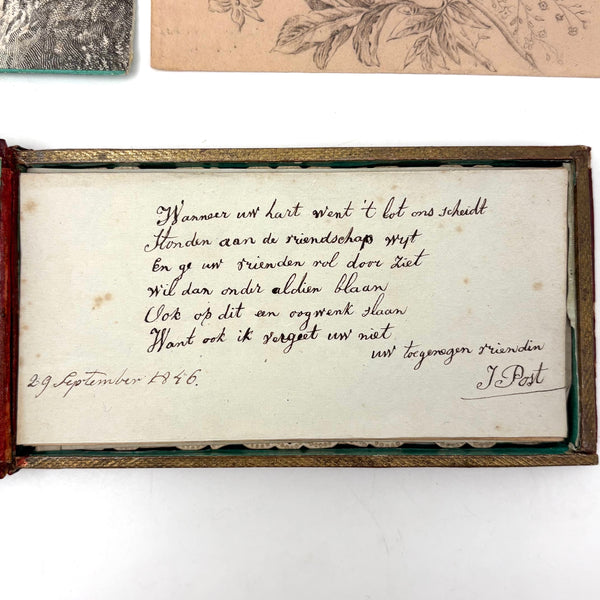 Wanneer uw hart went 't lot ons scheidt
Stonden aan de vriendschap wyt
En ge uw vrienden rol door ziet
Wil dan onder al dien blaan
Ook op dit een oogwenk slaan
Want ook ik vergeet uw niet
uw toegenegen vriendin
J Post
29 September 1846.